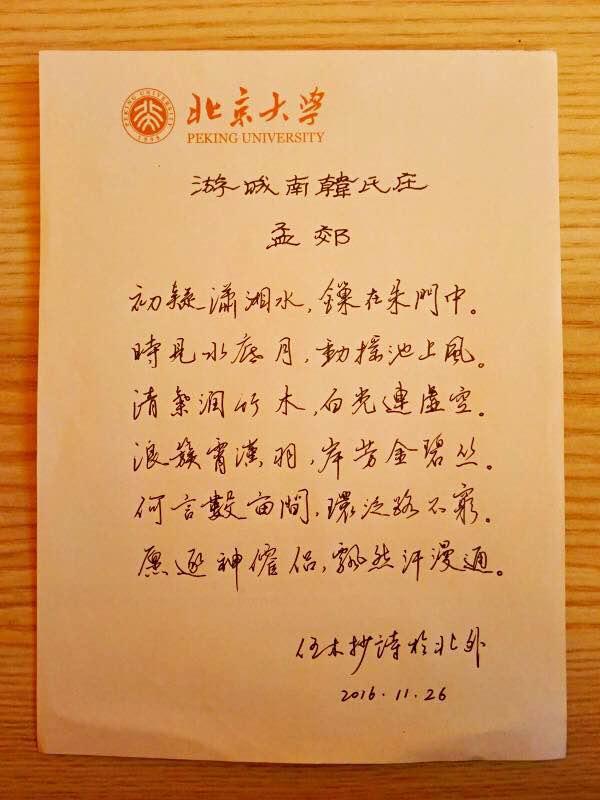 PEKING UNIVERSITY
1898
北京大学
PEKING UNIVERSITY
游城南韓氏庄
孟郊
初疑瀟湘水,鎖在朱門中。
時見水底月,動搖池上風。
清氣潤竹木,白光連虛空。
浪簇霄漢羽,岸芳金碧丛。
何言數亩間,環泛路不窮。
愿逐神僊侣,飄然汗漫通。
任木抄詩於北外
2016.11.26